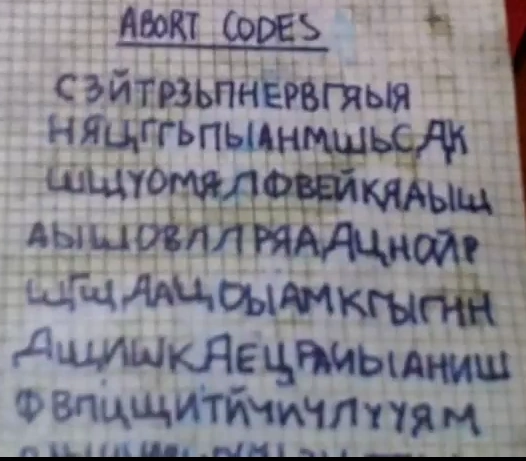 ABORT CODES
СЗЙТРЗЬПНЕРВГЯЫЯ
НЯЦГГЬПЫАНМШЬСДК
ШЩУОМЯЛФВЕЙКЯАЫЩ
АЫШОВЛЛРЯААДЦНОЙР
ЩГЩДАЦОЫАМКГЫГНН
ДЩИШКДЕЦРАИЫАНИШ
ФВПЦЩИТЙЧИЧЛУУЯМ